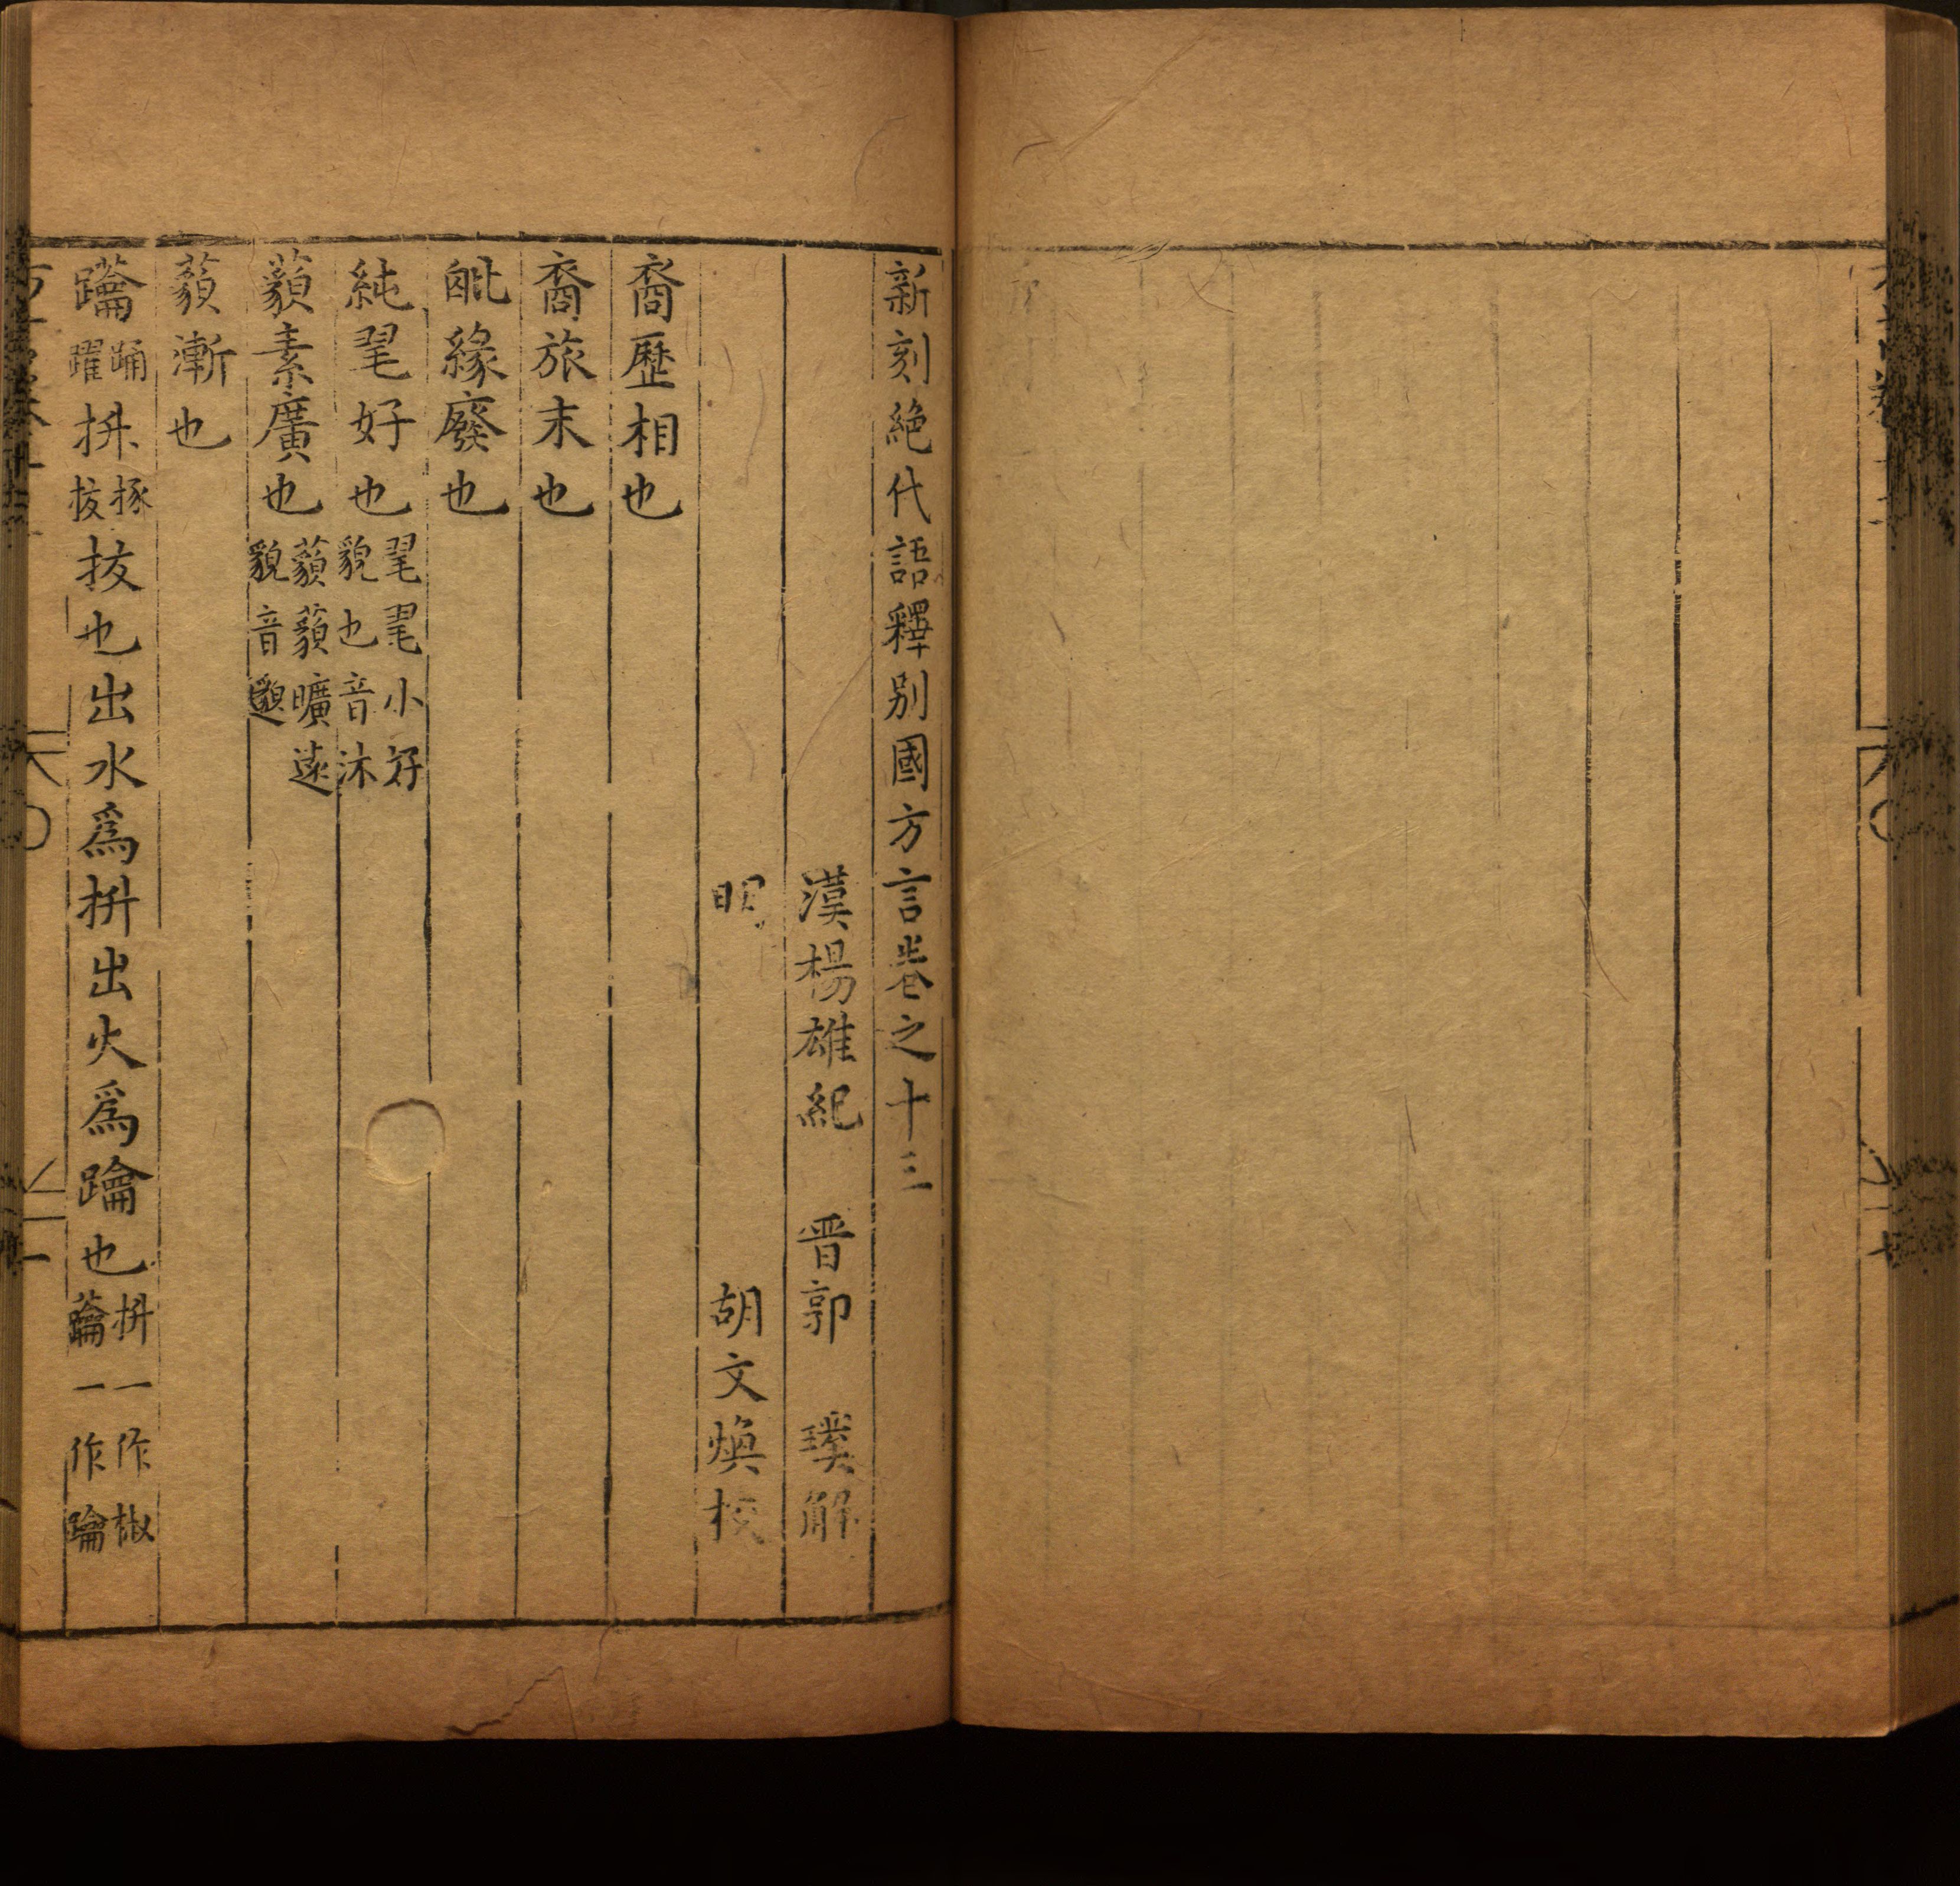 新刻絶代語釋別國方言卷之十三
漢楊雄紀　晋郭　璞解
明　胡文煥校
裔歷相也
裔旅末也
毗緣廢也
純毣好也毣毣小好貌也音沐
藐素廣也藐藐曠遠貌音邈
藐漸也
躣踊躍拚拯拔拔也出水為拚出火為躣也拚一作椒一作